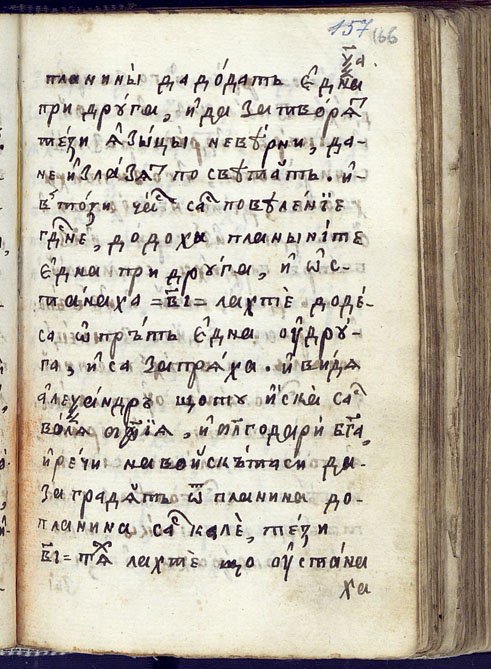 157
166
планины̀ да до́датъ є҆дна
при друга, и҆ да затворѧт
тези ѧ҆зыцы неверни, да-
не и҆злазѧт по светатъ. и҆-
в този час са повеленїе
гдне, додоха планыните
є҆дна при друга, и҆ ѡ҆с-
танаха =в҃і= лахтѐ доде-
са ѡ҆прътъ є҆дна ѹ҆ дру-
га, и҆ са запрѧха. и҆ видѧ
алеѯандръ щоту и҆ска са
волѧ, и҆ благодари бг҃а,
и҆ речи на войскътаси да-
заградѧтъ ѿ планина до-
планина са калѐ, тези
в҃і= тѧх лахтѐ що ѹ҆стана
ха